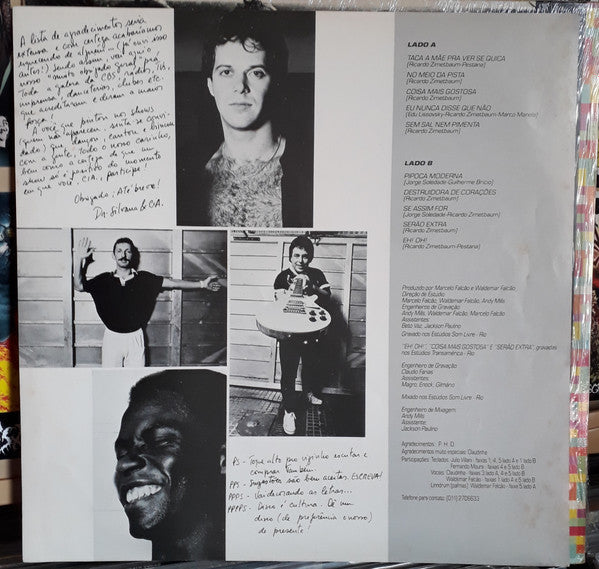 A lista de agradecimentos seria
extensa e com certeza acabaríamos
esquecendo de alguém — (já ouvi isso
antes!) sendo assim, vai aqui o
nosso "muito obrigado geral" pra
Toda a galera da CBS, rádios, TVs,
imprensa, danceterias, clubes etc.
que acreditaram e deram a maior
força!
A você que pintou nos shows
(quem não apareceu, está convi-
dado) que dançou, cantou e brincou
com a gente, todo o nosso carinho,
bem como a certeza de que um
show só é partido do momento
em que você, CIA., participe!
Obrigado, Até breve!
Dr. Silvana & CIA.
LADO A
TACA A MÃE PRA VER SE QUICA
(Ricardo Zimetbaum-Pestana)
NO MEIO DA PISTA
(Ricardo Zimetbaum)
COISA MAIS GOSTOSA
(Ricardo Zimetbaum)
EU NUNCA DISSE QUE NÃO
(Edu Lissovsky-Ricardo Zimetbaum-Marco Manela)
SEM SAL NEM PIMENTA
(Ricardo Zimetbaum)
LADO B
PIPOCA MODERNA
(Jorge Soledade-Guilherme Brício)
DESTRUIDORA DE CORAÇÕES
(Ricardo Zimetbaum)
SE ASSIM FOR
(Jorge Soledade-Ricardo Zimetbaum)
SERÃO EXTRA
(Ricardo Zimetbaum)
EH! OH!
(Ricardo Zimetbaum-Pestana)
Produzido por Marcelo Falcão e Waldemar Falcão
Direção de Estúdio:
Marcelo Falcão, Waldemar Falcão, Andy Mills
Engenheiros de Gravação:
Andy Mills, Waldemar Falcão, Marcelo Falcão
Assistentes:
Beto Vaz, Jackson Paulino
Gravado nos Estúdios Som Livre - Rio
"EH! OH!", "COISA MAIS GOSTOSA" E "SERÃO EXTRA", gravadas
nos Estúdios Transamérica - Rio
Engenheiro de Gravação
Claudio Farias
Assistentes:
Magro, Erick, Gilmário
Mixado nos Estúdios Som Livre - Rio
Engenheiro de Mixagem:
Andy Mills
Assistente:
Jackson Paulino
Agradecimentos: P. H. D.
Agradecimentos muito especiais: Claudinha
Participações: Teclados: Julio Vilani - faixas 1, 4, 5 lado A e 1 lado B
Fernando Moura - faixas 4 e 5 lado B
Vocais: Claudinha - faixas 3 lado A, 4 e 5 lado B
Waldemar Falcão - faixas 1 lado A e 5 lado B
Linndrum (palmas): Waldemar Falcão - faixa 5 lado A
Telefone para contato: (021) 2706633
PS - Toque alto pro vizinho escutar e
comprar também.
PPS - Sugestões são bem aceitas. ESCREVA!
PPPS - Vai decorando as letras...
PPPPS - Disco é cultura. Dê um
disco (de preferência o nosso)
de presente!